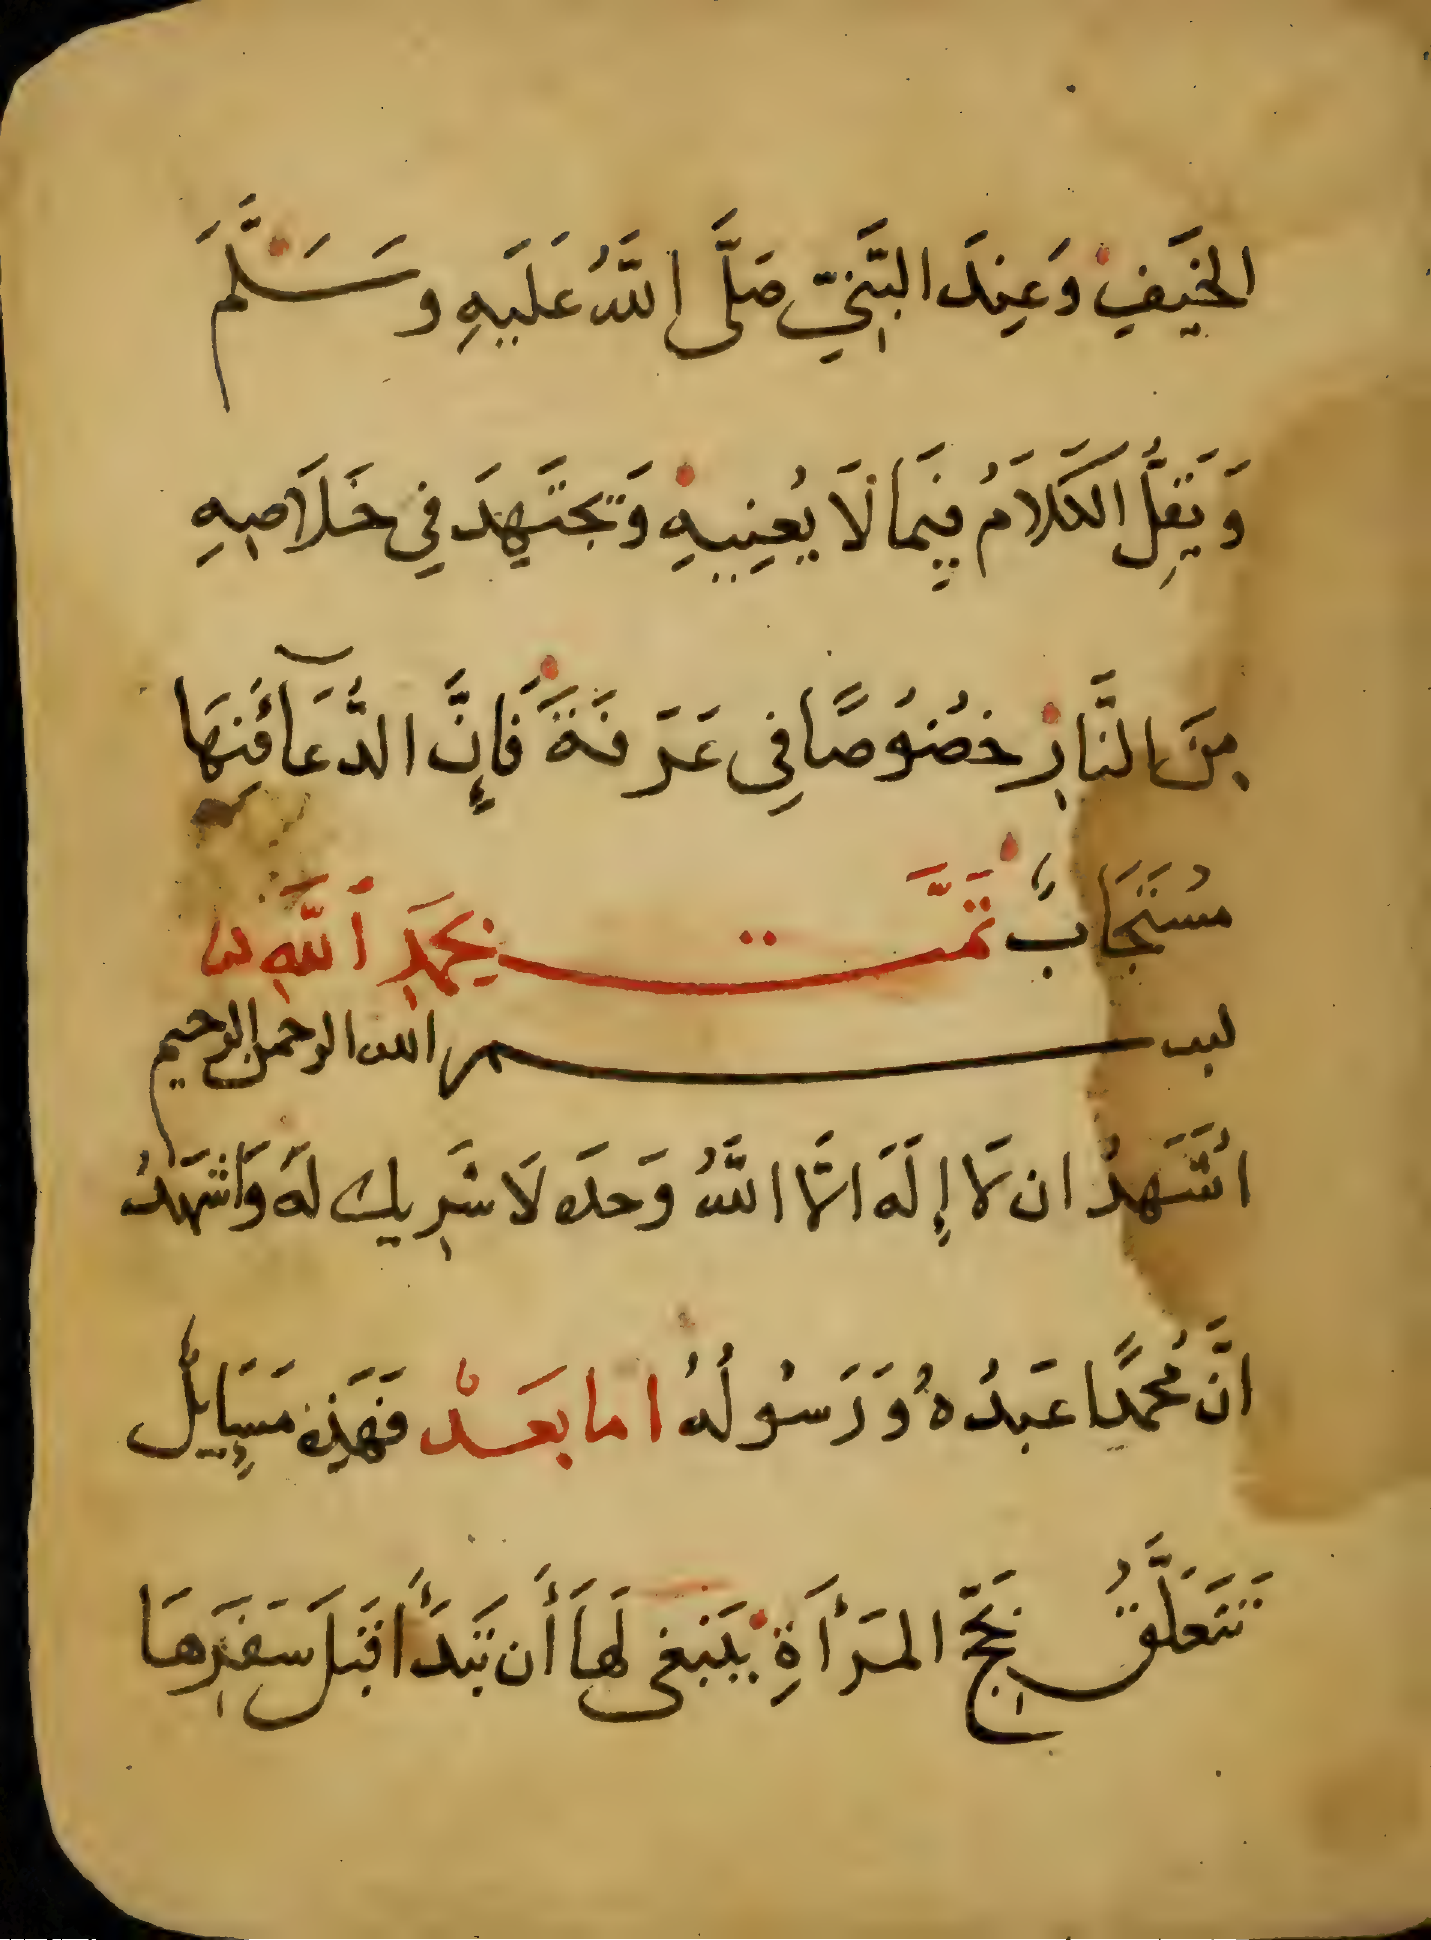 الخَيفِ وَعِندَ النَّبِيِّ صَلَّى اللَّهُ عَلَيهِ وسَلَّمَ
وَيَقِلَّ الكَلَامُ فِيمَا لَا يُعِنِيهِ وَيَجتَهِدَ فِي خَلَاصِهِ
مِنَ النَّارِ خصُوصًا فِى عَرَفَةَ فَإِنَّ الدُّعَآءَ فِيهَا
مُستَجَابٌ تَمَّت بِحَمدِ اللَّهِ
بسم الله الرحمن الرحيم
اَشهَدُ ان لَا إِلَهَ الَّا اللَّهُ وَحدَه لَا شَرِيك لَه وَاَشهَدُ
انَّ مُحمدًا عَبدُهُ وَرَسُولُهُ اما بَعَدْ فَهَذِه مَسَايِلُ
تَتَعَلَّقُ بِحَجِّ المَرأَةِ يَنبَغى لَهَا أَن تَبدَأَ قَبلَ سَفَرِهَا